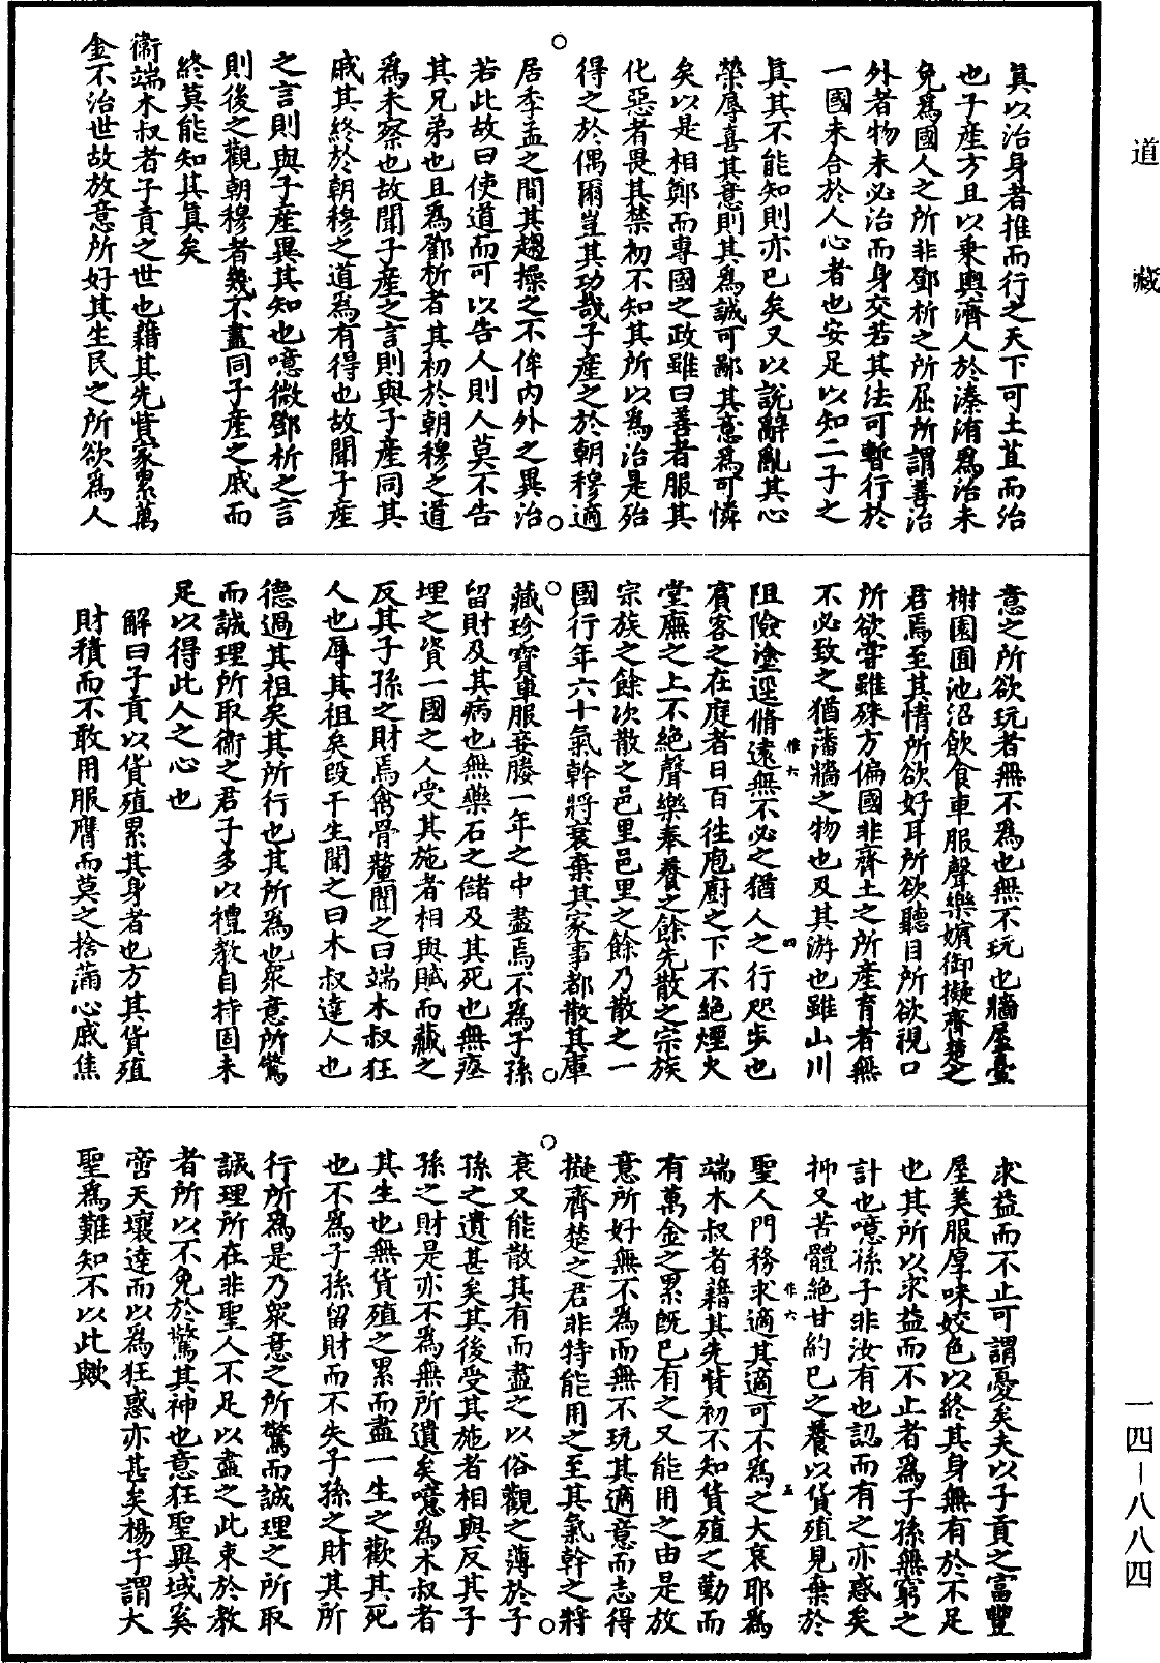 道藏
真以治身者推而行之天下可土苴而治
也子產方且以乘輿濟人於溱洧為治未
免為國人之所非鄧析之所屈所謂善治
外者物未必治而身交若其法可暫行於
一國未合於人心者也安足以知二子之
真其不能知則亦已矣又以說辭亂其心
榮辱喜其意則其為誠可鄙其意為可憐
矣以是相鄭而專國之政雖曰善者服其
化惡者畏其禁初不知其所以為治是殆
得之於偶爾豈其功哉子產之於朝穆適
居季孟之間其趨操之不侔內外之異治
若此故曰使道而可以告人則人莫不告
其兄弟也且為鄧析者其初於朝穆之道
為未察也故聞子產之言則與子產同其
戚其終於朝穆之道為有得也故聞子產
之言則與子產異其知也噫微鄧析之言
則後之觀朝穆者幾不盡同子產之戚而
終莫能知其真矣
衛端木叔者子貢之世也藉其先貲家累萬
金不治世故放意所好其生民之所欲為人
意之所欲玩者無不為也無不玩也牆屋臺
榭園囿池沼飲食車服聲樂嬪御擬齊楚之
君焉至其情所欲好耳所欲聽目所欲視口
所欲嘗雖殊方偏國非齊土之所產育者無
不必致之猶藩牆之物也及其游也雖山川
阻險塗逕脩遠無不必之猶人之行咫步也
賓客之在庭者日百往庖廚之下不絕煙火
堂廡之上不絕聲樂奉養之餘先散之宗族
宗族之餘次散之邑里邑里之餘乃散之一
國行年六十氣幹將衰棄其家事都散其庫
藏珍寶車服妾媵一年之中盡焉不為子孫
留財及其病也無藥石之儲及其死也無瘞
埋之資一國之人受其施者相與賦而藏之
反其子孫之財焉禽骨釐聞之曰端木叔狂
人也辱其祖矣段干生聞之曰木叔達人也
德過其祖矣其所行也其所為也眾意所驚
而誠理所取衛之君子多以禮教自持固未
足以得此人之心也
解曰子貢以貨殖累其身者也方其貨殖
財積而不敢用服膺而莫之捨滿心戚焦
求益而不止可謂憂矣夫以子貢之富豐
屋美服厚味姣色以終其身無有於不足
也其所以求益而不止者為子孫無窮之
計也噫孫子非汝有也認而有之亦惑矣
抑又苦體絕甘約己之養以貨殖見棄於
聖人門務求適其適可不為之大哀耶為
端木叔者藉其先貲初不知貨殖之勤而
有萬金之累既已有之又能用之由是放
意所好無不為而無不玩其適意而志得
擬齊楚之君非特能用之至其氣幹之將
衰又能散其有而盡之以俗觀之薄於子
孫之遺甚矣其後受其施者相與反其子
孫之財是亦不為無所遺矣噫為木叔者
其生也無貨殖之累而盡一生之歡其死
也不為子孫留財而不失子孫之財其所
行所為是乃眾意之所驚而誠理之所取
誠理所在非聖人不足以盡之此束於教
者所以不免於驚其神也意狂聖異域奚
啻天壤達而以為狂惑亦甚矣楊子謂大
聖為難知不以此歟
一四－八八四